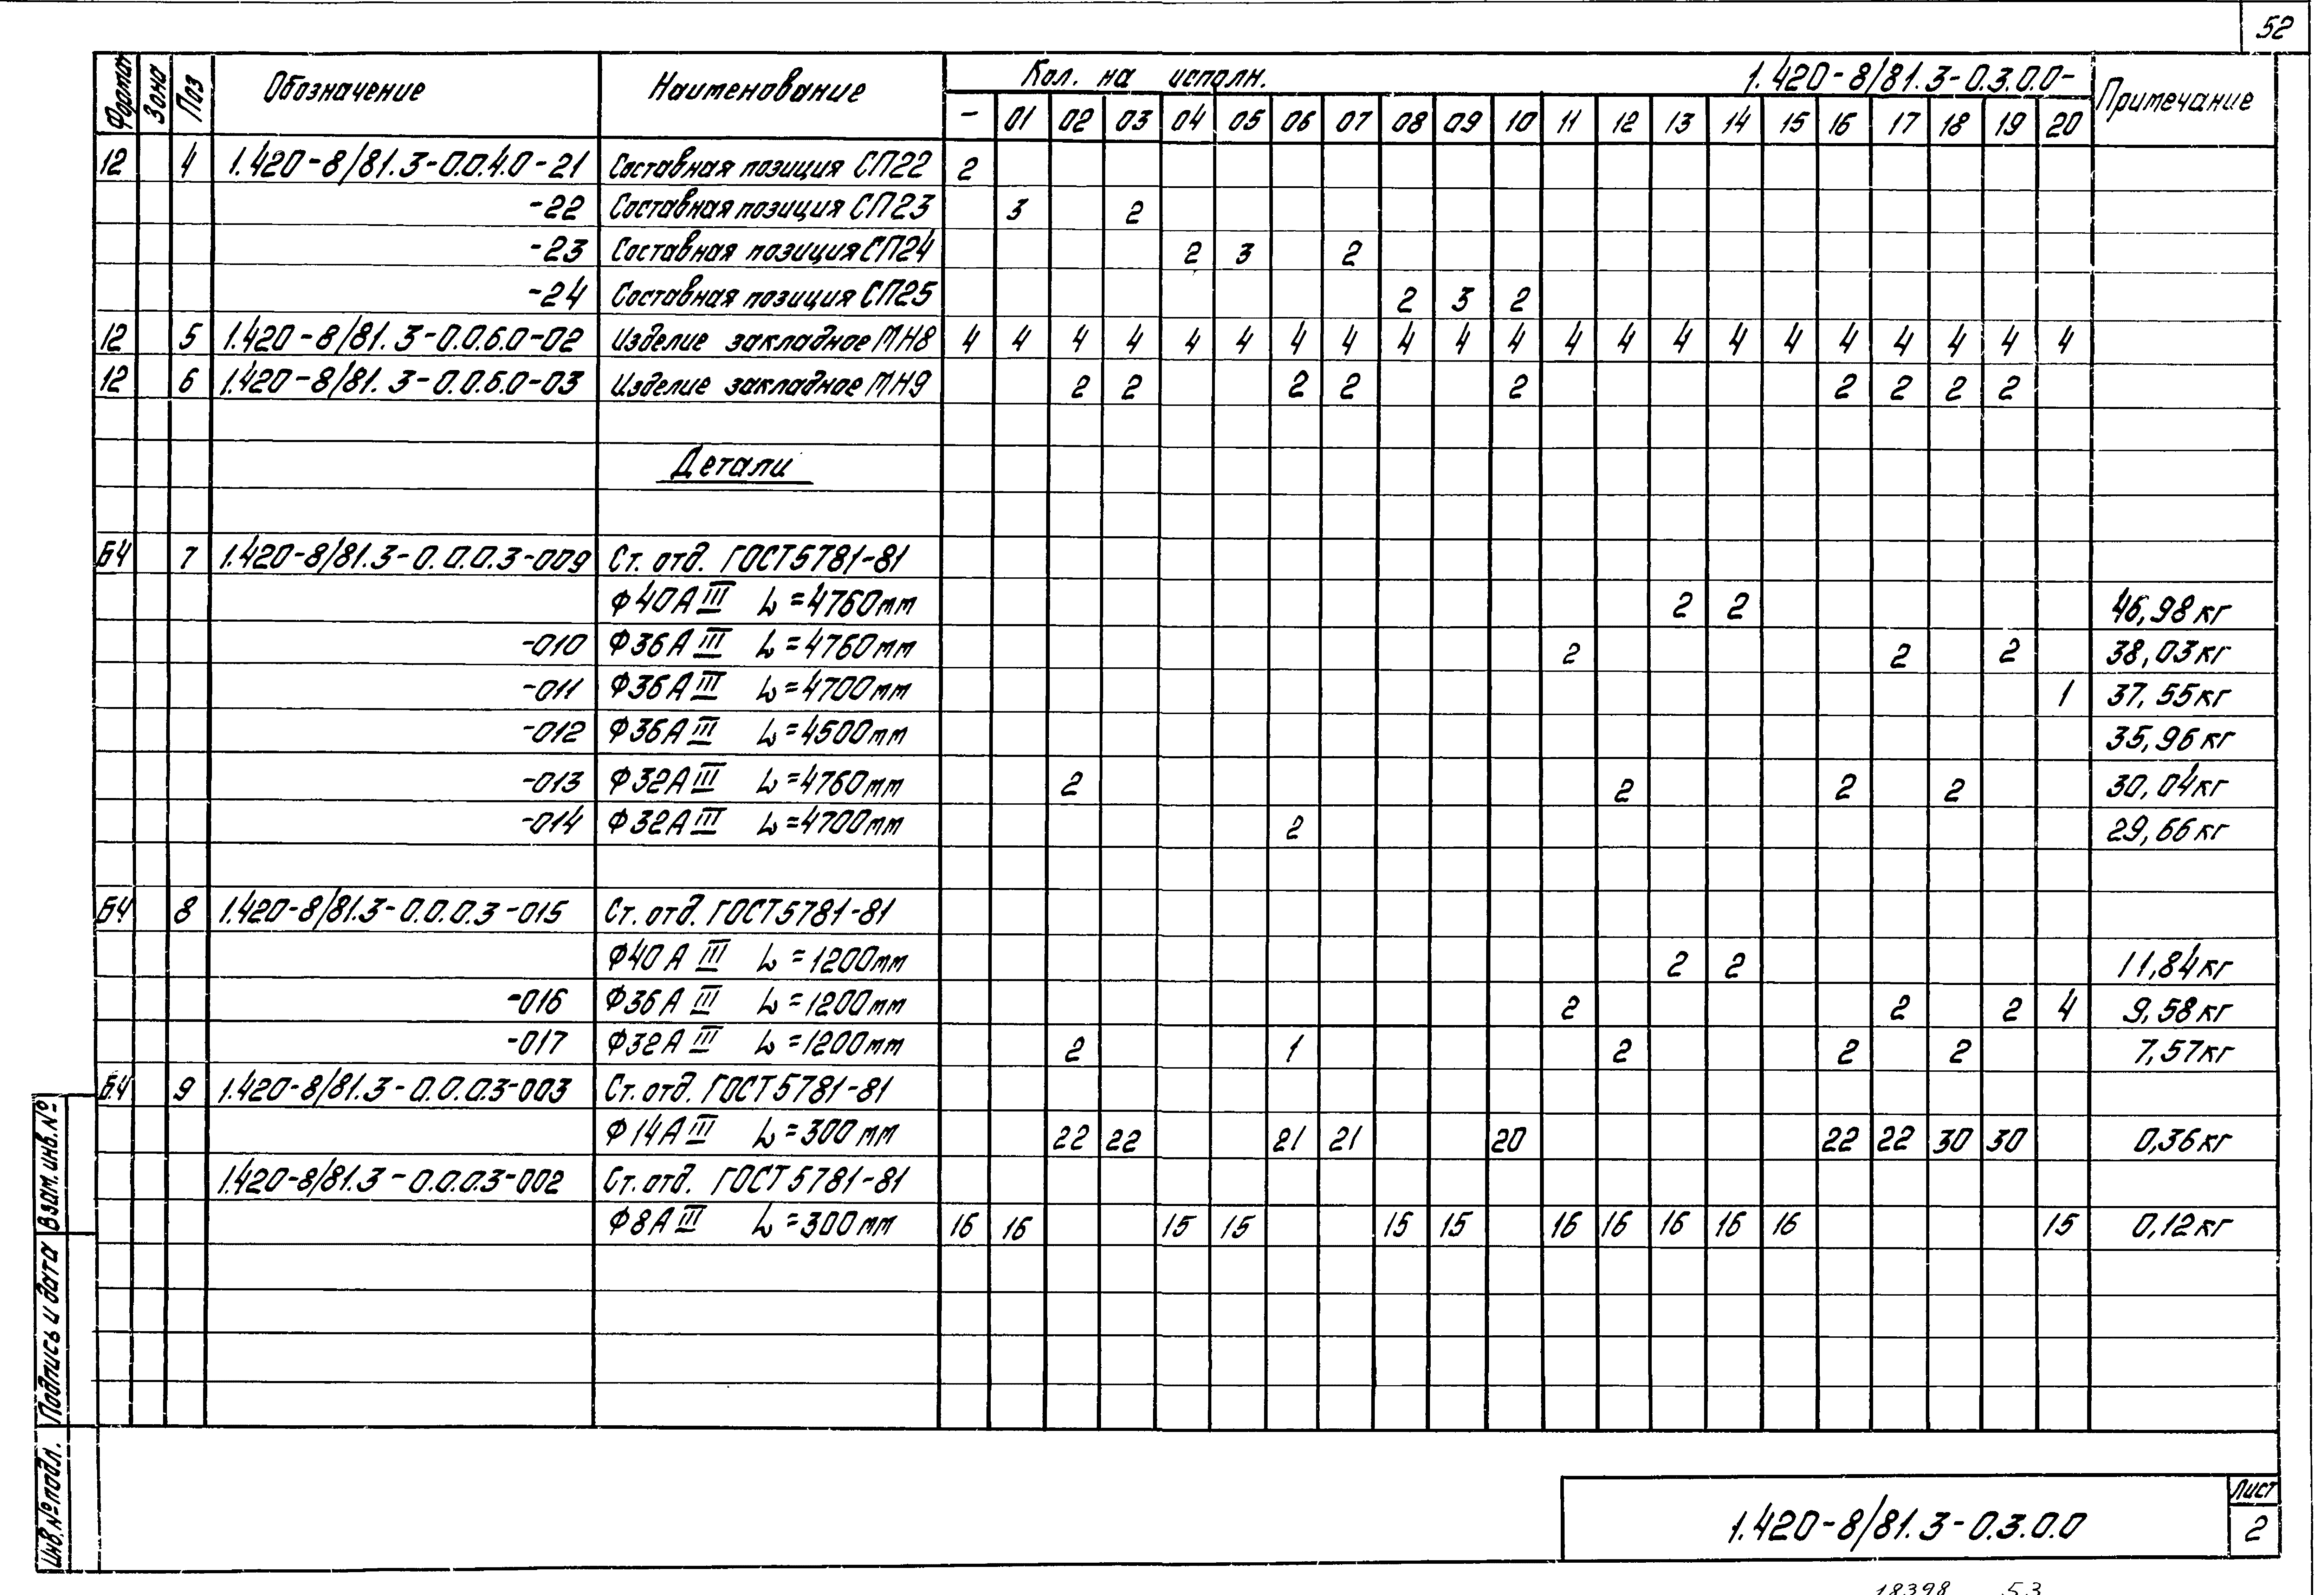 52
Формат Зона Поз Обозначение Наименование Кол. на исполн. 1.420-8/81.3-0.3.0.0- Примечание
- 01 02 03 04 05 06 07 08 09 10 11 12 13 14 15 16 17 18 19 20
12 4 1.420-8/81.3-0.0.4.0-21 Составная позиция СП22 2
-22 Составная позиция СП23 3 2
-23 Составная позиция СП24 2 3 2
-24 Составная позиция СП25 2 3 2
12 5 1.420-8/81.3-0.0.6.0-02 Изделие закладное МН8 4 4 4 4 4 4 4 4 4 4 4 4 4 4 4 4 4 4 4 4 4
12 6 1.420-8/81.3-0.0.6.0-03 Изделие закладное МН9 2 2 2 2 2 2 2 2 2
Детали
БЧ 7 1.420-8/81.3-0.0.0.3-009 Ст. отд. ГОСТ 5781-81
Ф40АIII L=4760мм 2 2 46,98 кг
-010 Ф36АIII L=4760мм 2 2 2 38,03 кг
-011 Ф36АIII L=4700мм 1 37,55 кг
-012 Ф36АIII L=4500мм 35,96 кг
-013 Ф32АIII L=4760мм 2 2 2 2 30,04 кг
-014 Ф32АIII L=4700мм 2 29,66 кг
БЧ 8 1.420-8/81.3-0.0.0.3-015 Ст. отд. ГОСТ 5781-81
Ф40АIII L=1200мм 2 2 11,84 кг
-016 Ф36АIII L=1200мм 2 2 2 4 9,58 кг
-017 Ф32АIII L=1200мм 2 1 2 2 2 7,57 кг
БЧ 9 1.420-8/81.3-0.0.0.3-003 Ст. отд. ГОСТ 5781-81
Ф14АIII L=300мм 22 22 21 21 20 22 22 30 30 0,36 кг
1.420-8/81.3-0.0.0.3-002 Ст. отд. ГОСТ 5781-81
Ф8АIII L=300мм 16 16 15 15 15 15 16 16 16 16 16 15 0,12 кг
Инв.№ подл. Подпись и дата Взам. инв.№
1.420-8/81.3-0.3.0.0
Лист
2
18398 53